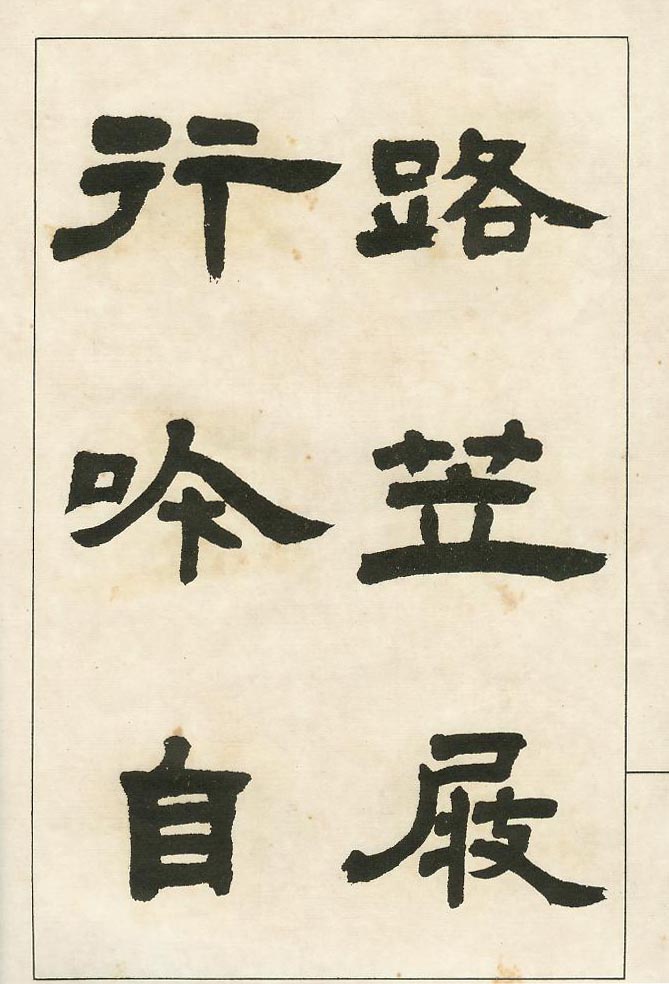 路笠屐
行吟自